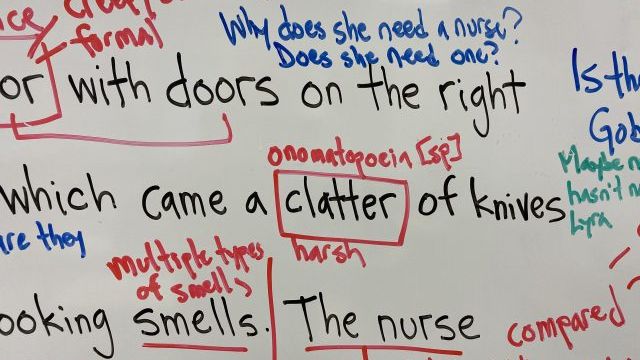 formal
Why does she need a nurse?
Does she need one?
or with doors on the right
onomatopoeia [sp]
which came a clatter of knives
are they
harsh
multiple types
of smells
ooking smells. The nurse
compared
Lyra